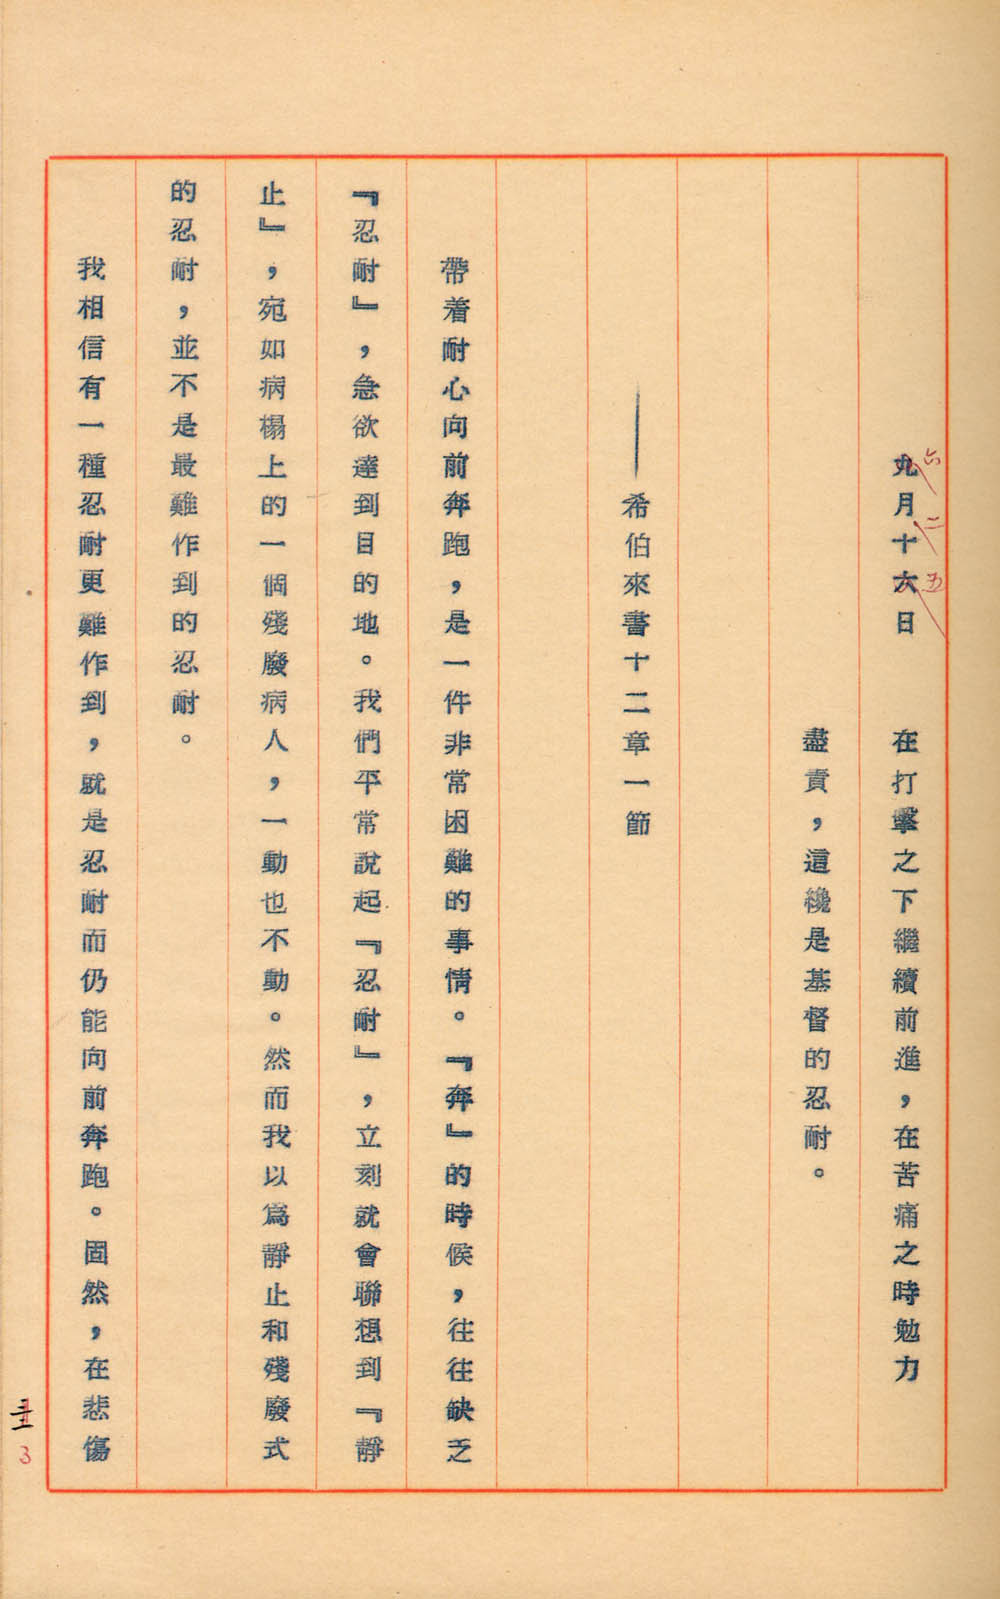 九月十六日　在打擊之下繼續前進，在苦痛之時勉力
六二五
盡責，這纔是基督的忍耐。
——希伯來書十二章一節
帶着耐心向前奔跑，是一件非常困難的事情。『奔』的時候，往往缺乏
『忍耐』，急欲達到目的地。我們平常說起『忍耐』，立刻就會聯想到『靜
止』，宛如病榻上的一個殘廢病人，一動也不動。然而我以爲靜止和殘廢式
的忍耐，並不是最難作到的忍耐。
我相信有一種忍耐更難作到，就是忍耐而仍能向前奔跑。固然，在悲傷
3